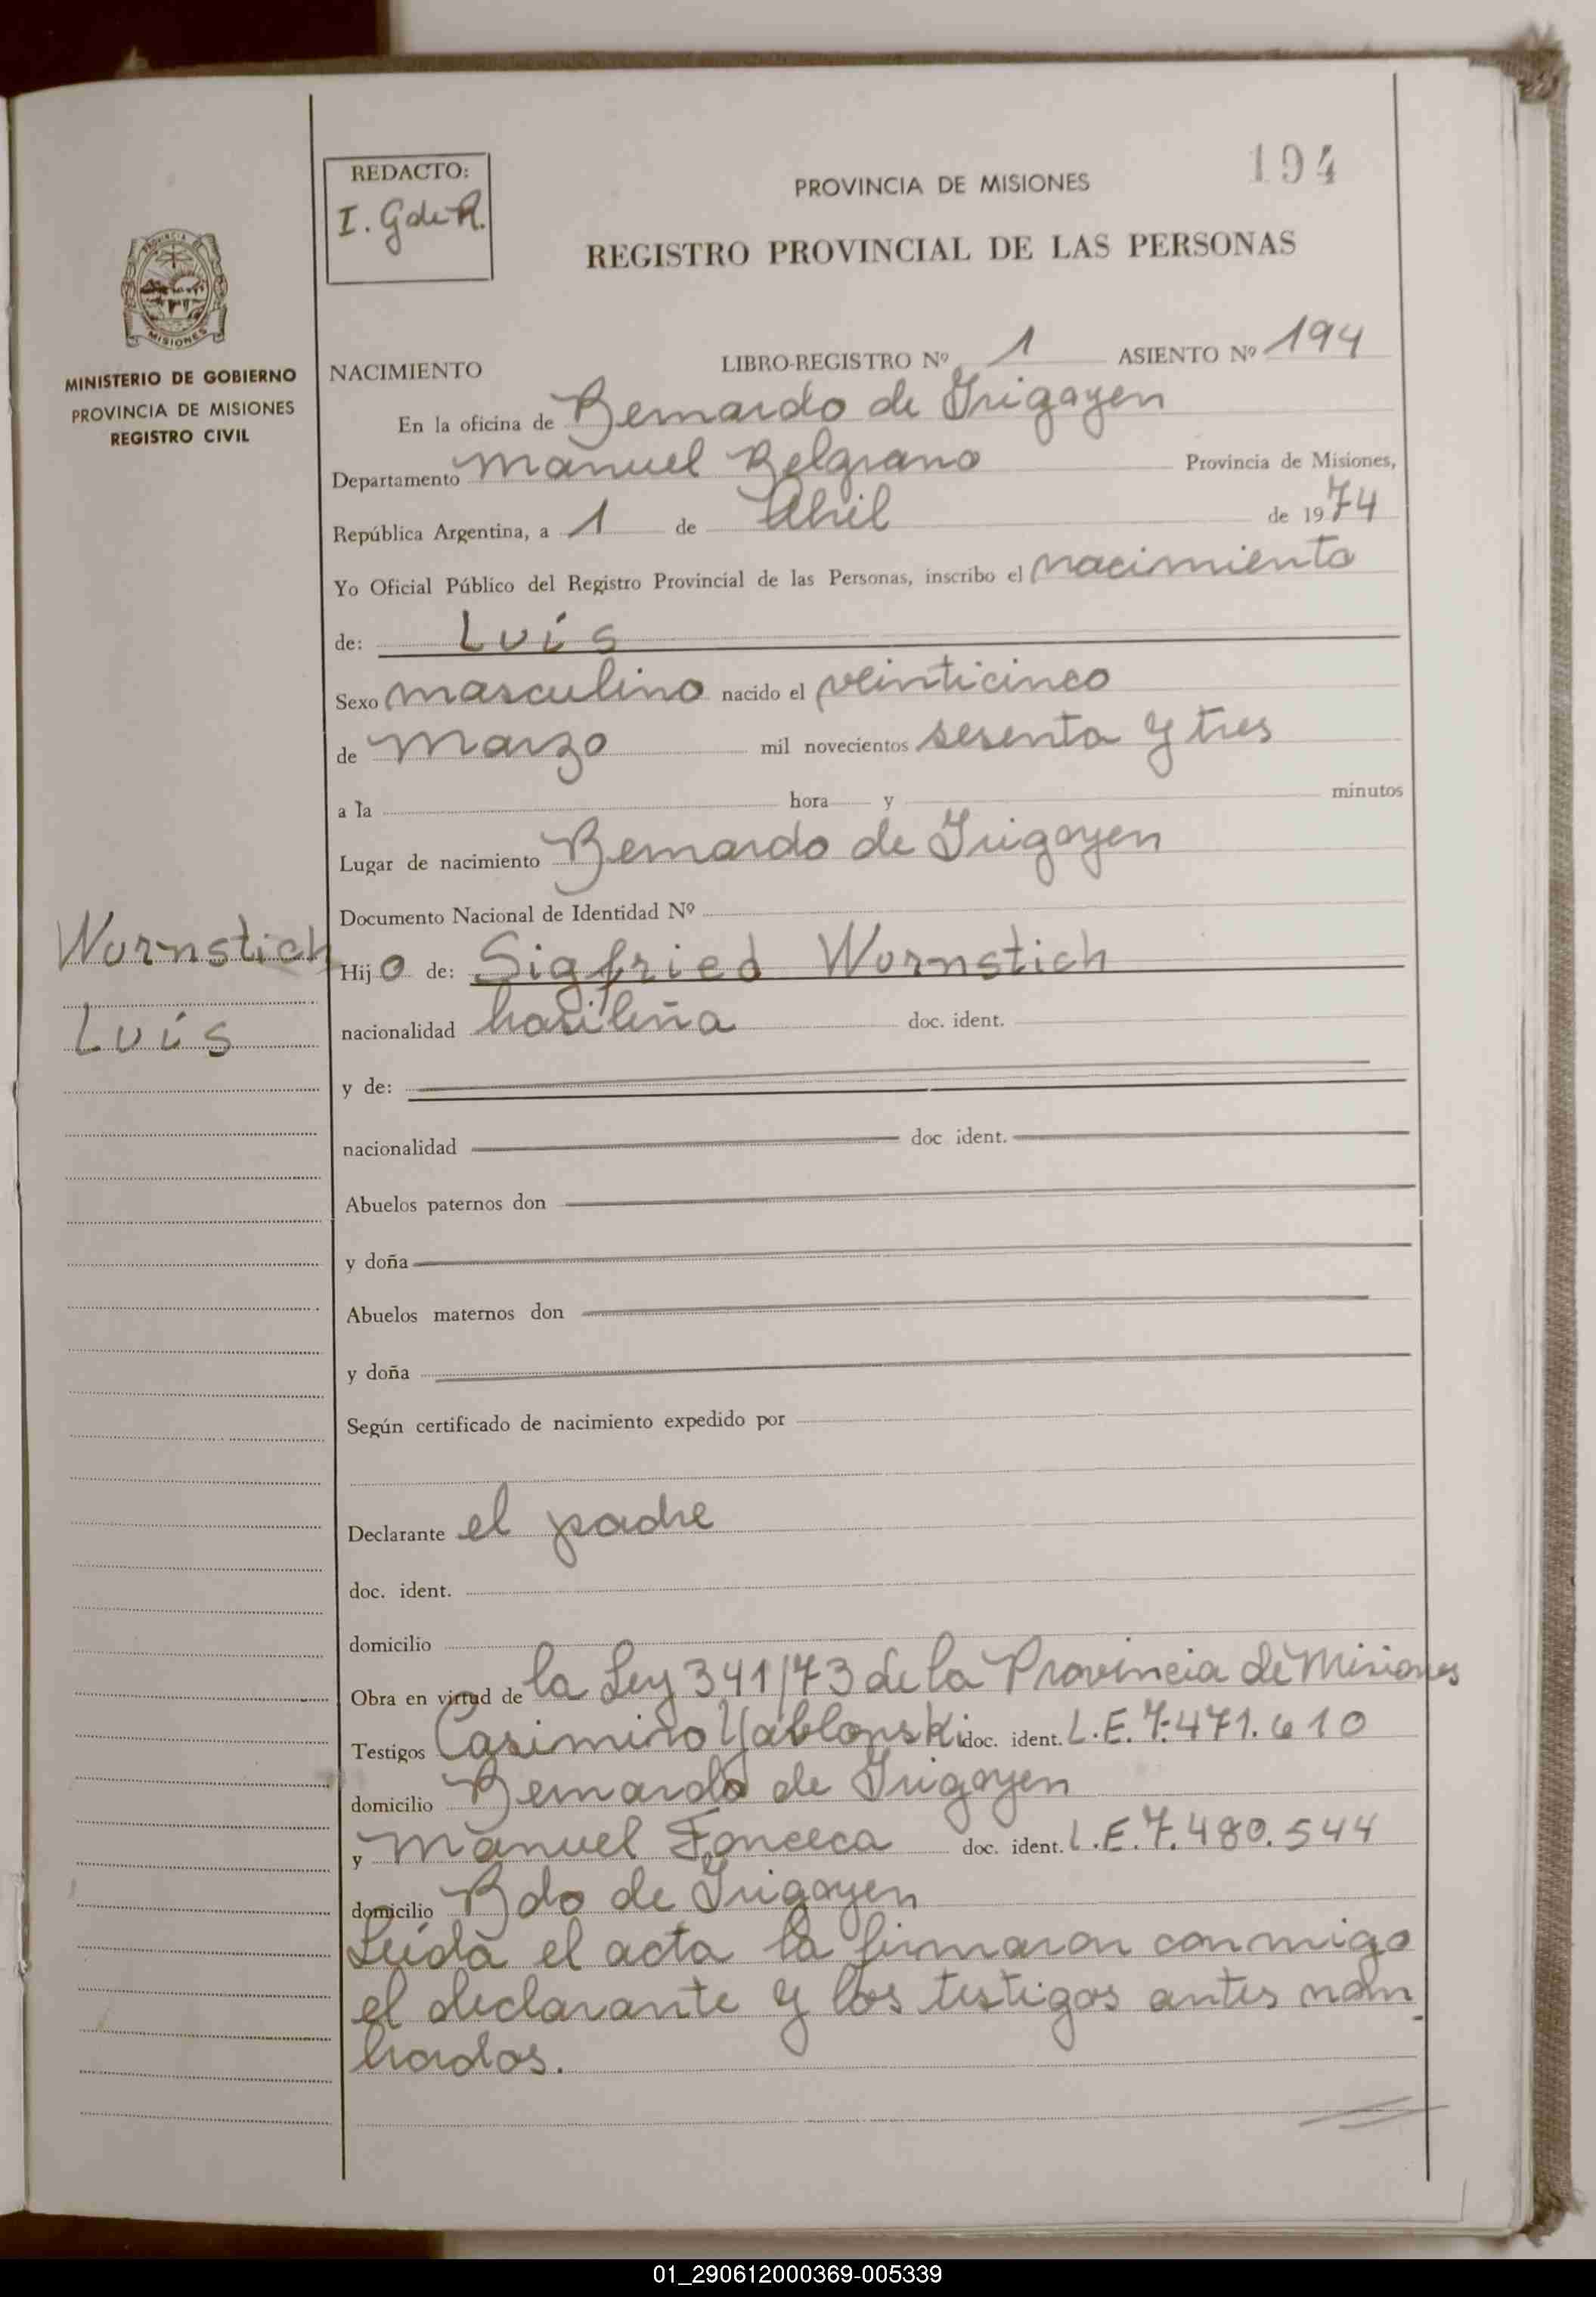 194
REDACTO:
I. G de R.
PROVINCIA DE MISIONES
REGISTRO PROVINCIAL DE LAS PERSONAS
PROVINCIA DE
MISIONES
MINISTERIO DE GOBIERNO
PROVINCIA DE MISIONES
REGISTRO CIVIL
NACIMIENTO LIBRO-REGISTRO Nº 1 ASIENTO Nº 194
En la oficina de Bernardo de Irigoyen
Departamento Manuel Belgrano Provincia de Misiones,
República Argentina, a 1 de Abril de 1974
Yo Oficial Público del Registro Provincial de las Personas, inscribo el nacimiento
de: Luís
Sexo masculino nacido el veinticinco
de Marzo mil novecientos sesenta y tres
a la hora y minutos
Lugar de nacimiento Bernardo de Irigoyen
Documento Nacional de Identidad Nº
Wornstich
Luís
Hijo de: Sigfried Wornstich
nacionalidad brasileña doc. ident.
y de:
nacionalidad doc ident.
Abuelos paternos don
y doña
Abuelos maternos don
y doña
Según certificado de nacimiento expedido por
Declarante el padre
doc. ident.
domicilio
Obra en virtud de la Ley 341/73 de la Provincia de Misiones
Testigos Casimiro Yablonski doc. ident. L.E. 7.471.610
domicilio Bernardo de Irigoyen
y Manuel Fonceca doc. ident. L.E. 7.480.544
domicilio Bdo de Irigoyen
Leída el acta la firmaron conmigo
el declarante y los testigos antes nom
brados.
01_290612000369-005339